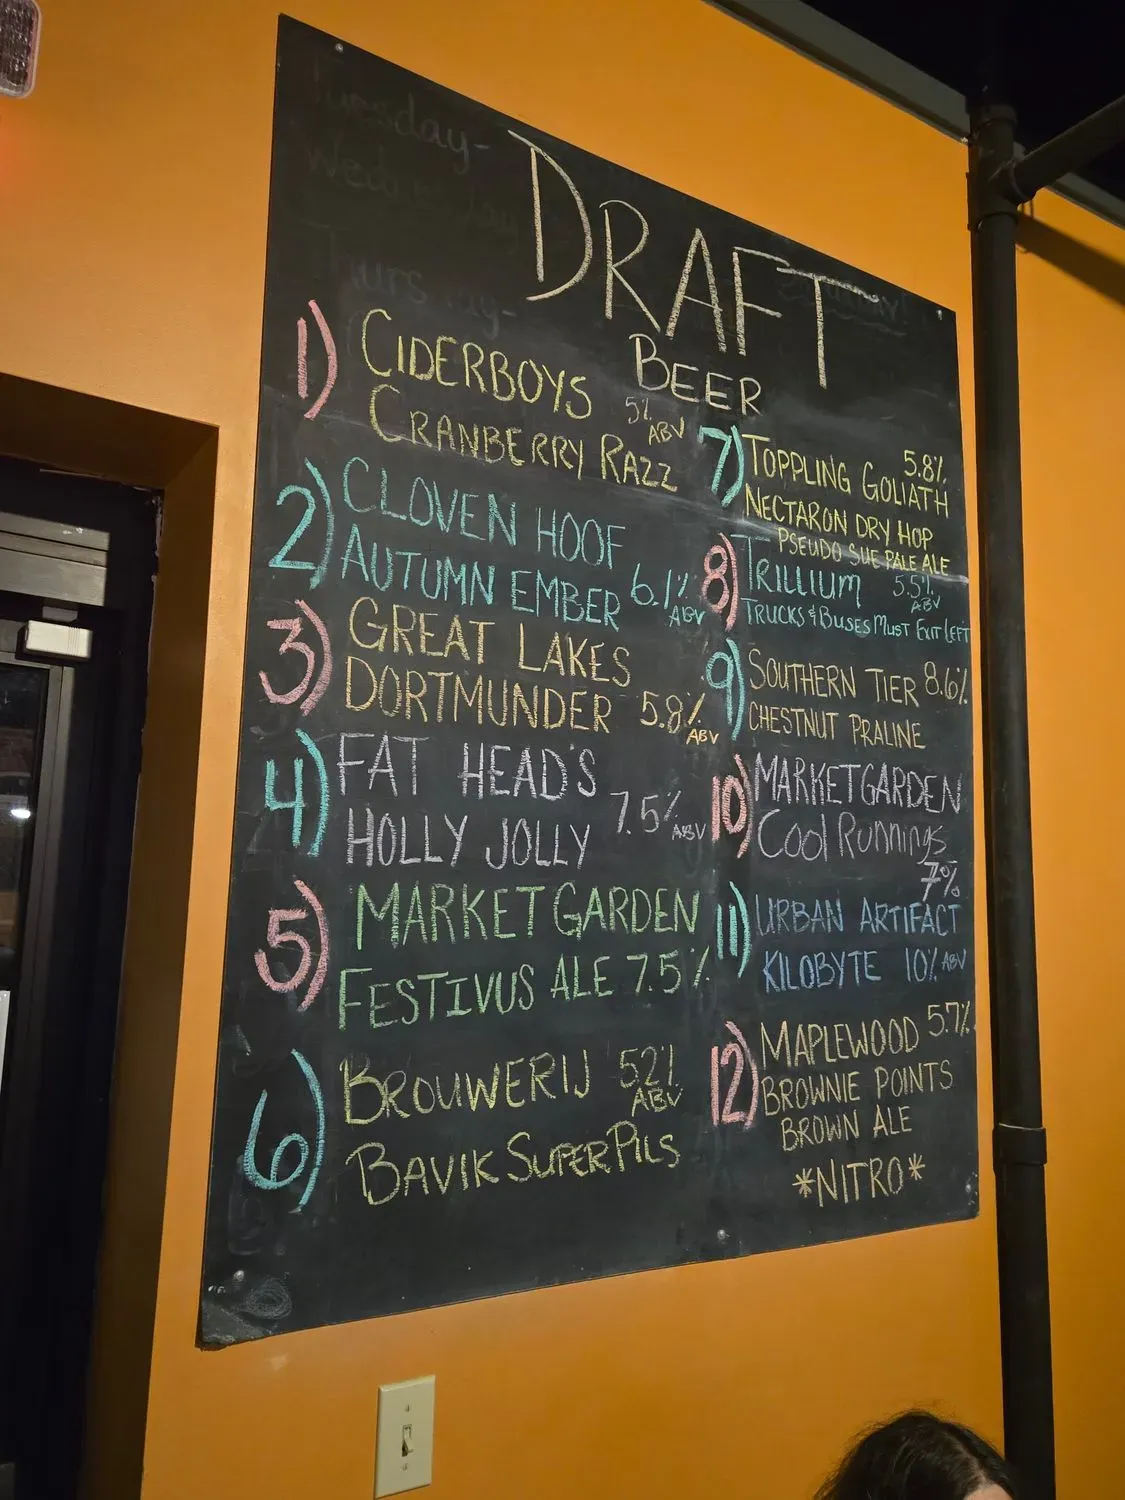 Tuesday-
Wednesday
Thursday-
DRAFT
BEER
1) CIDERBOYS
CRANBERRY RAZZ
5% ABV
2) CLOVEN HOOF
AUTUMN EMBER 6.1% ABV
3) GREAT LAKES
DORTMUNDER 5.8% ABV
4) FAT HEAD'S
HOLLY JOLLY 7.5% ABV
5) MARKET GARDEN
FESTIVUS ALE 7.5%
6) BROUWERIJ 5.2% ABV
BAVIK SUPER PILS
7) TOPPLING GOLIATH 5.8%
NECTARON DRY HOP
PSEUDO SUE PALE ALE
8) TRILLIUM 5.5% ABV
TRUCKS & BUSES MUST EXIT LEFT
9) SOUTHERN TIER 8.6%
CHESTNUT PRALINE
10) MARKET GARDEN
Cool Runnings
7%
11) URBAN ARTIFACT
KILOBYTE 10% ABV
12) MAPLEWOOD 5.7%
BROWNIE POINTS
BROWN ALE
*NITRO*